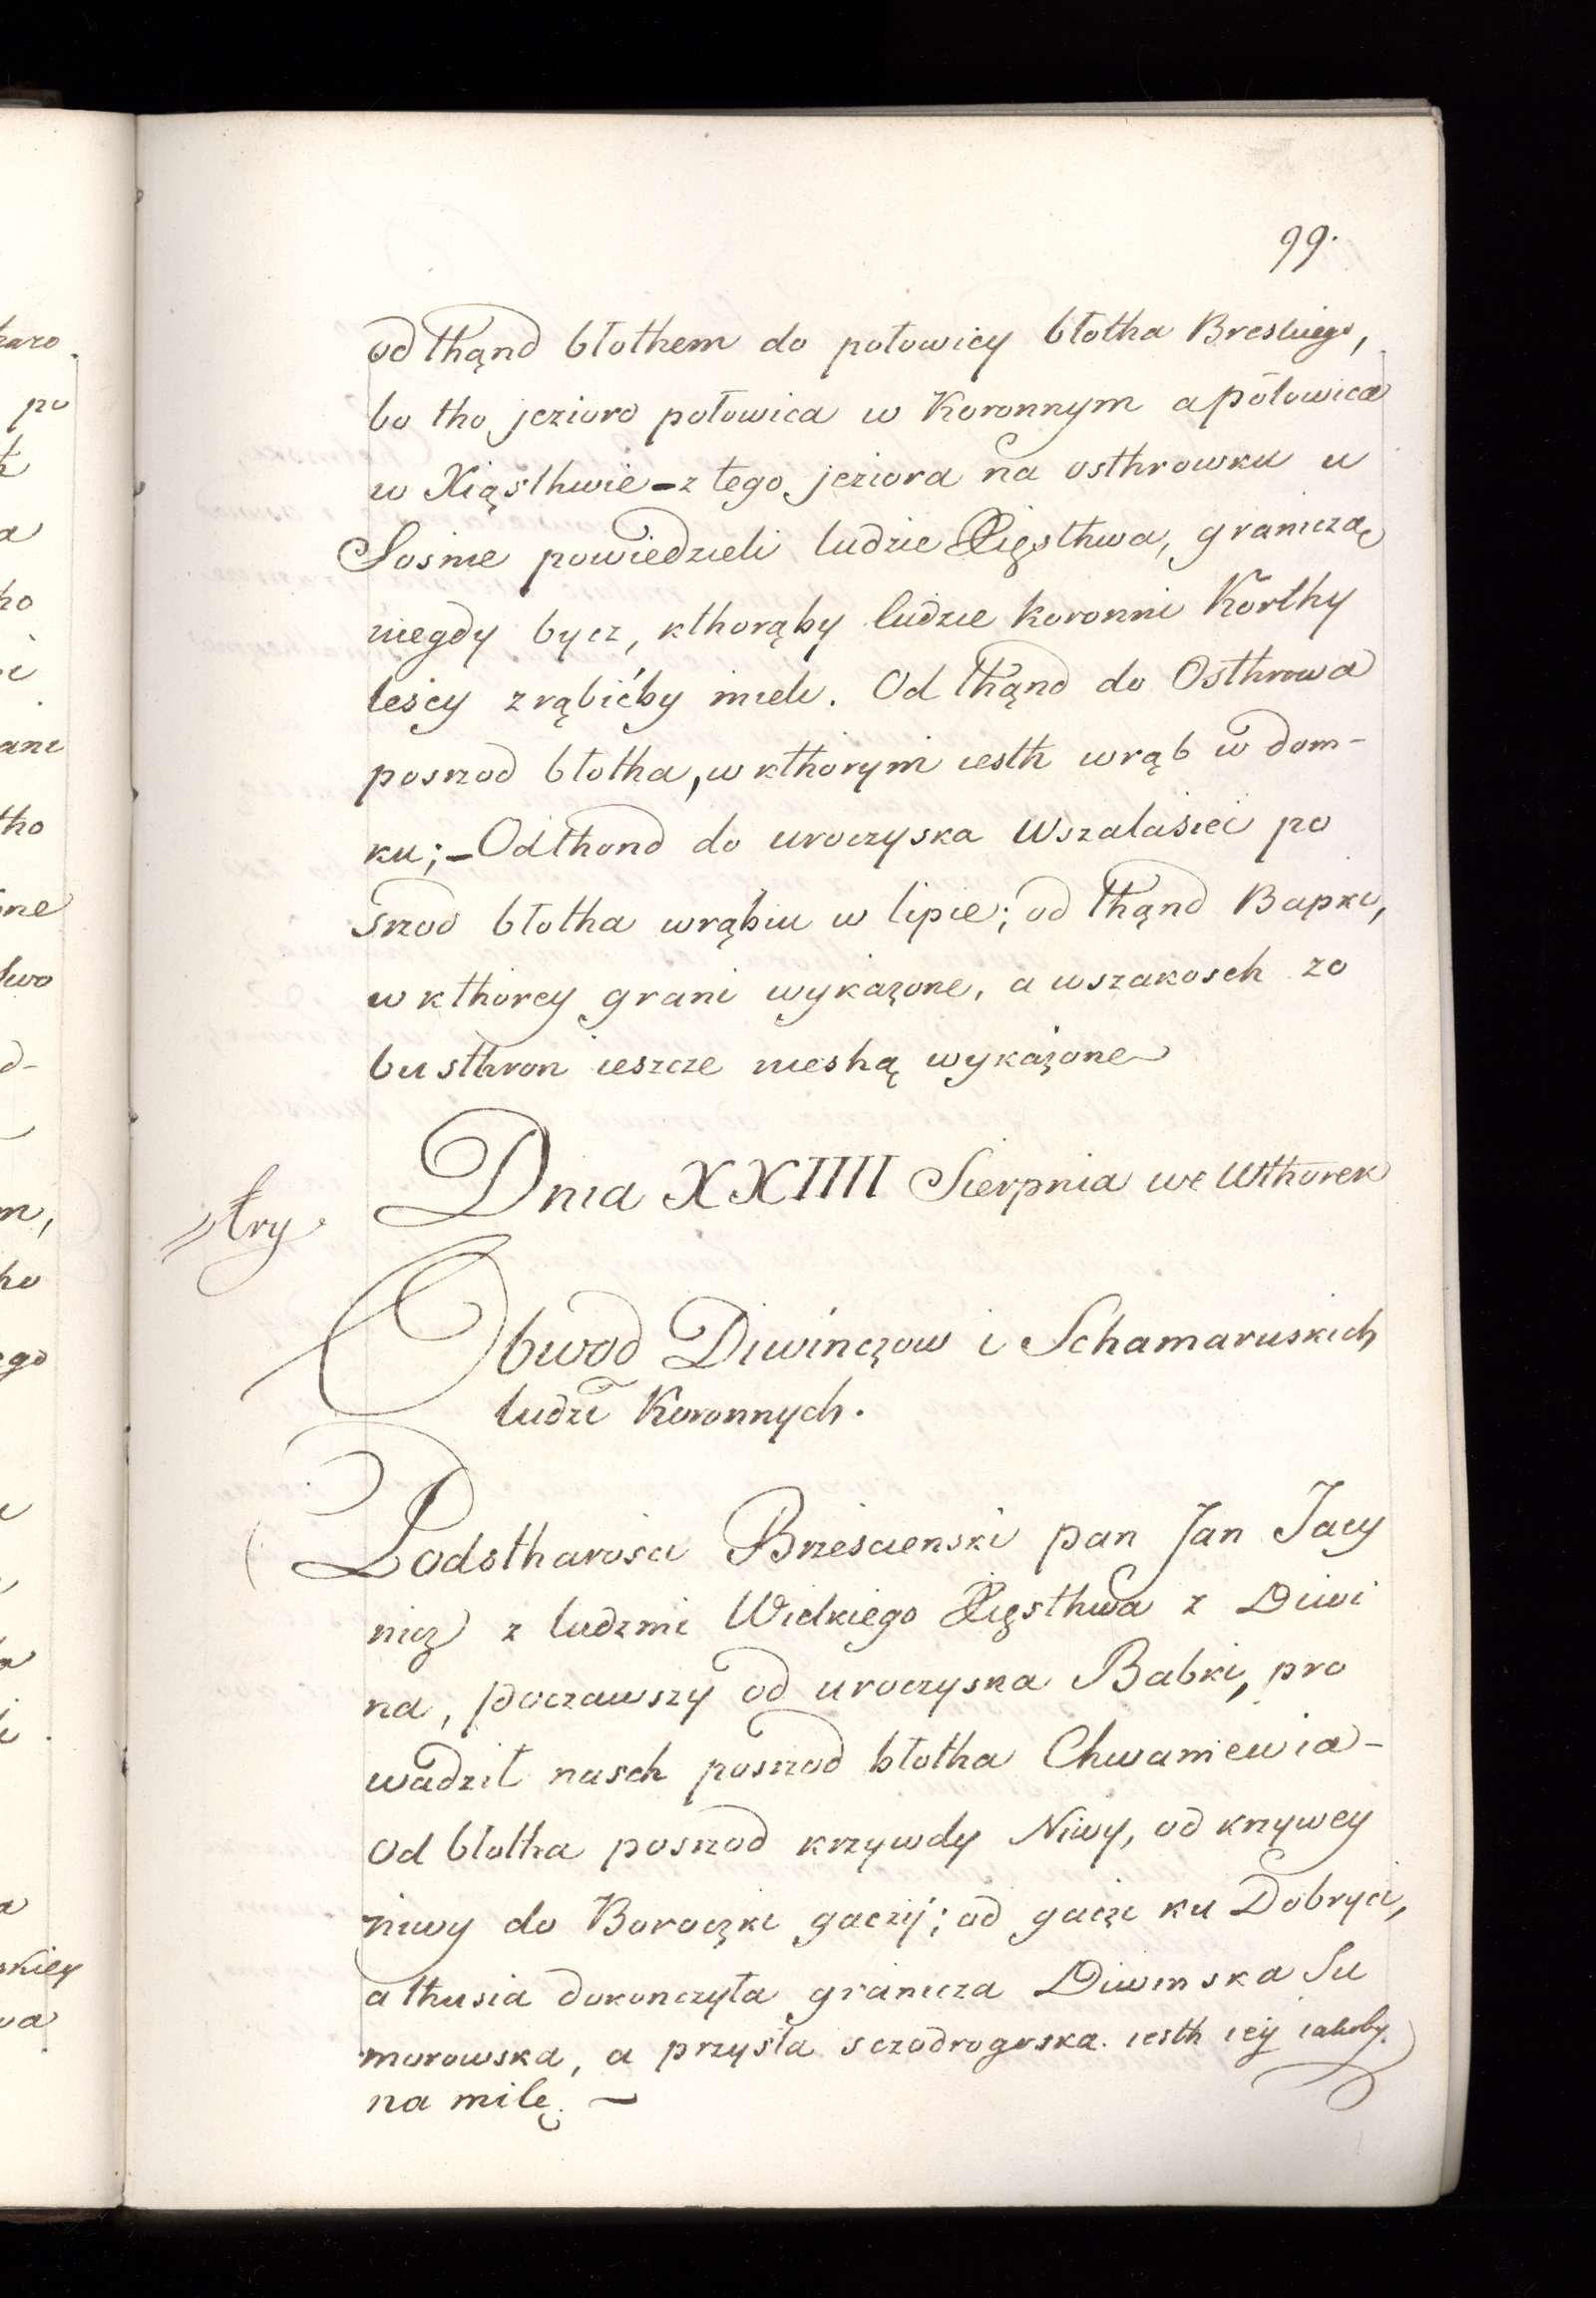 99.
od thąnd błothem do połowicy błotha Breskiego,
bo tho jezioro połowica w Koronnym a połowica
w Xiąsthwie – z tego jeziora na osthrowku u
Sosnie powiedzieli ludzie Xięsthwa, graniczą
niegdy bycz, kthorąby ludzie koronni Korthy
lescy zrąbićby mieli. Od thąnd do Osthrowa
posrzod błotha, w kthorym iesth wrąb w dom-
ku; – Odthond do uroczyska Wszalasiei po
srzod błotha wrąbiu w lipie; od thąnd Bapki,
w kthorey grani wykazone, a wszakosch zo
bu sthron ieszcze nieshą wykazone
Dnia XXIIII Sierpnia we Wthorek
try
Obwod Diwinczow i Schamaruskich
ludzi Koronnych.
Podstharosci Brzescienski pan Jan Jacy
nicz z ludzmi Wielkiego Xięsthwa z Diwi
na, poczawszy od uroczyska Babki, pro
wadził nasch posrzod błotha Chwaniewia –
od błotha posrzod krzywdy Niwy, od krzywey
niwy do Boroczki gaczij; od gaczi ku Dobryci,
a thusia dokonczyła granicza Diwinska Su
morowska, a przysła sczodrogorska. iesth iey iakoby
na milę. –
kazo
po
a
ho
i
ani
tho
me
two
d-
m,
ho
ego
a
skiey
wa